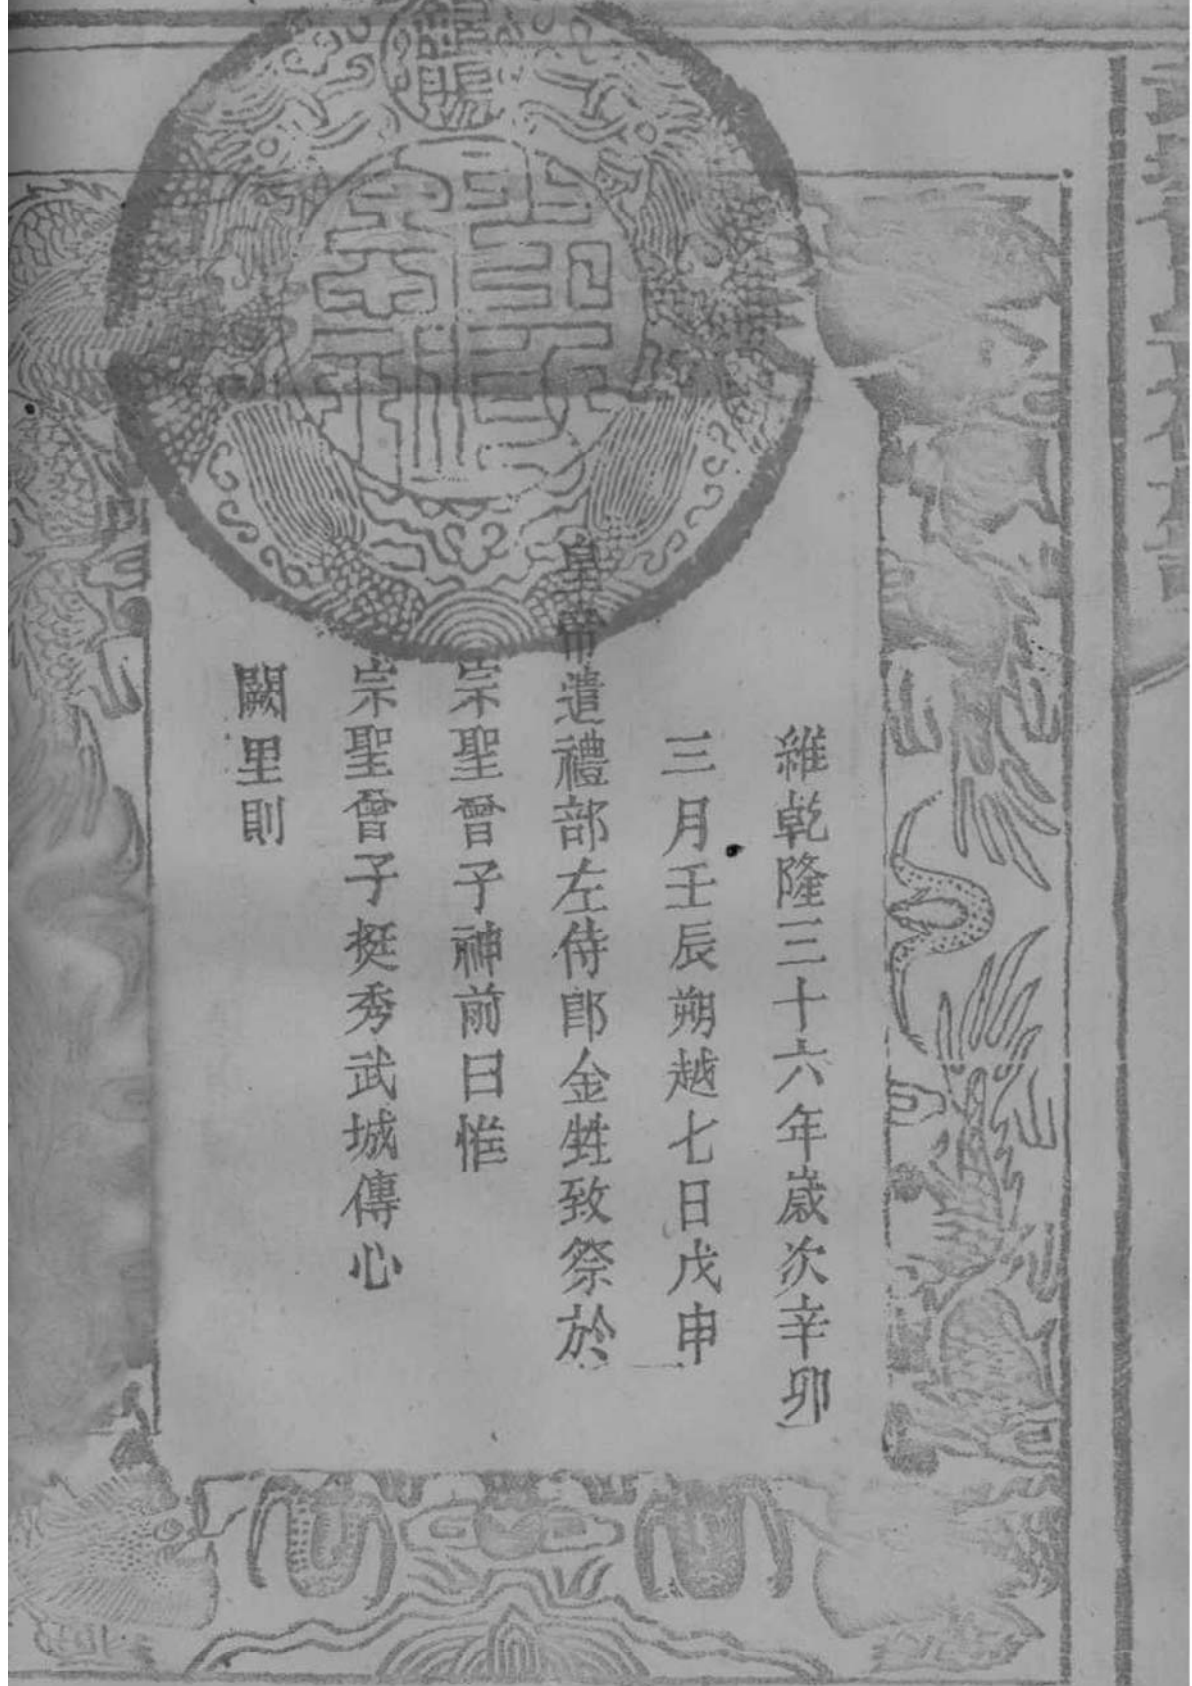 維乾隆三十六年歲次辛卯
三月壬辰朔越七日戊申
皇帝遣禮部左侍郎金甡致祭於
宗聖曾子神前曰惟
宗聖曾子挺秀武城傳心
闕里則